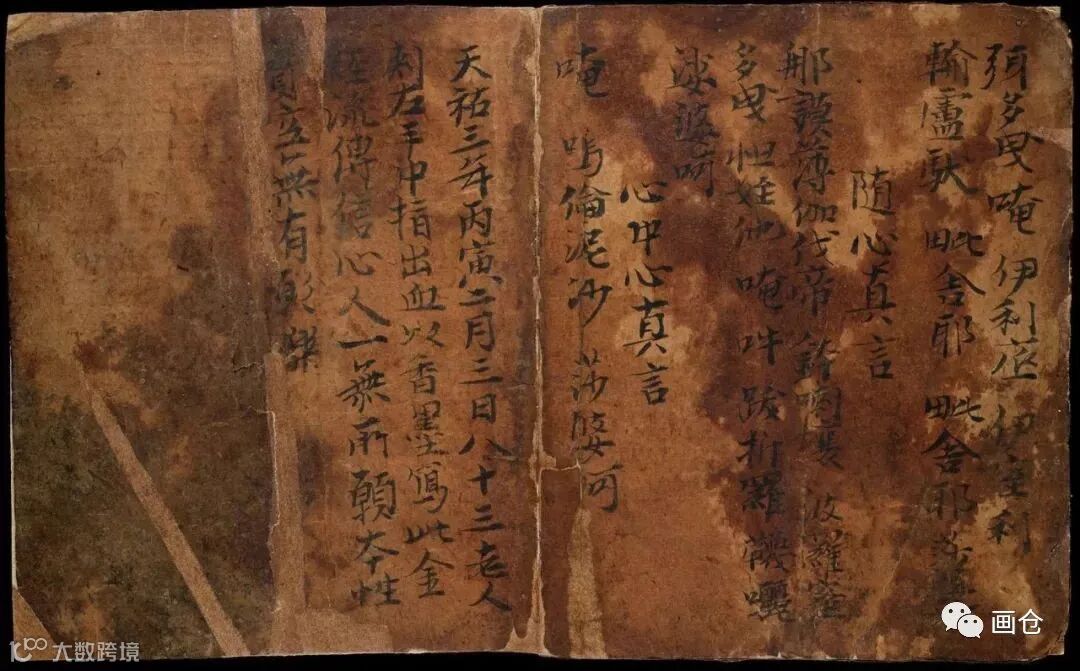 弭多曳唵伊利底伊室利
輸盧馱毗舍耶毗舍耶莎
随心真言
那謨薄伽伐帝波羅
多曳怛姪他唵吽跋折羅
莎婆呵
心中心真言
唵 嗚倫泥沙 莎婆訶
天祐三年丙寅二月三日八十三老人
刺左手中指出血以香墨寫此金
經流傳信心人一無所願本性
實空無有願樂
画仓
大数跨境